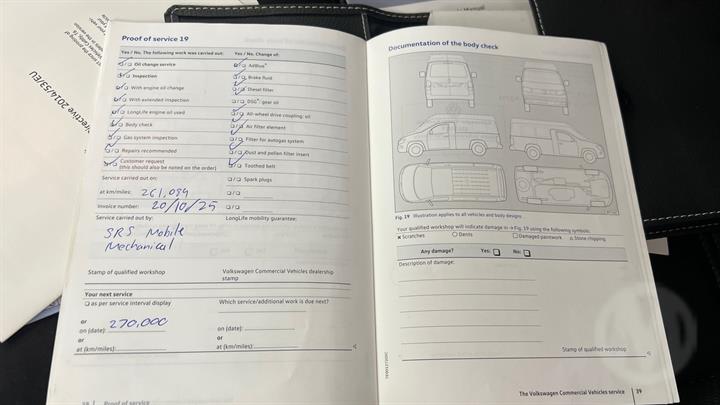 Manual
ective 2014/53/EU
Proof of service 19
Yes / No, The following work was carried out:
Yes / No, Change of:
Oil change service
AdBlue®
Inspection
Brake fluid
With engine oil change
Diesel filter
With extended inspection
DSG®: gear oil
LongLife engine oil used
All-wheel drive coupling: oil
Body check
Air filter element
Gas system inspection
Filter for autogas system
Repairs recommended
Dust and pollen filter insert
Customer request
(this should also be noted on the order)
Toothed belt
Service carried out on:
Spark plugs
at km/miles: 261,094
Invoice number: 20/10/25
Service carried out by:
LongLife mobility guarantee:
SRS Mobile
Mechanical
Stamp of qualified workshop
Volkswagen Commercial Vehicles dealership
stamp
Your next service
as per service interval display
Which service/additional work is due next?
or
on (date): 270,000
on (date):
or
or
at (km/miles):
at (km/miles):
38 Proof of service
Documentation of the body check
Fig. 19 Illustration applies to all vehicles and body designs
Your qualified workshop will indicate damage in → Fig. 19 using the following symbols:
× Scratches ○ Dents □ Damaged paintwork △ Stone chipping
Any damage? Yes: No:
Description of damage:
Stamp of qualified workshop
The Volkswagen Commercial Vehicles service 39